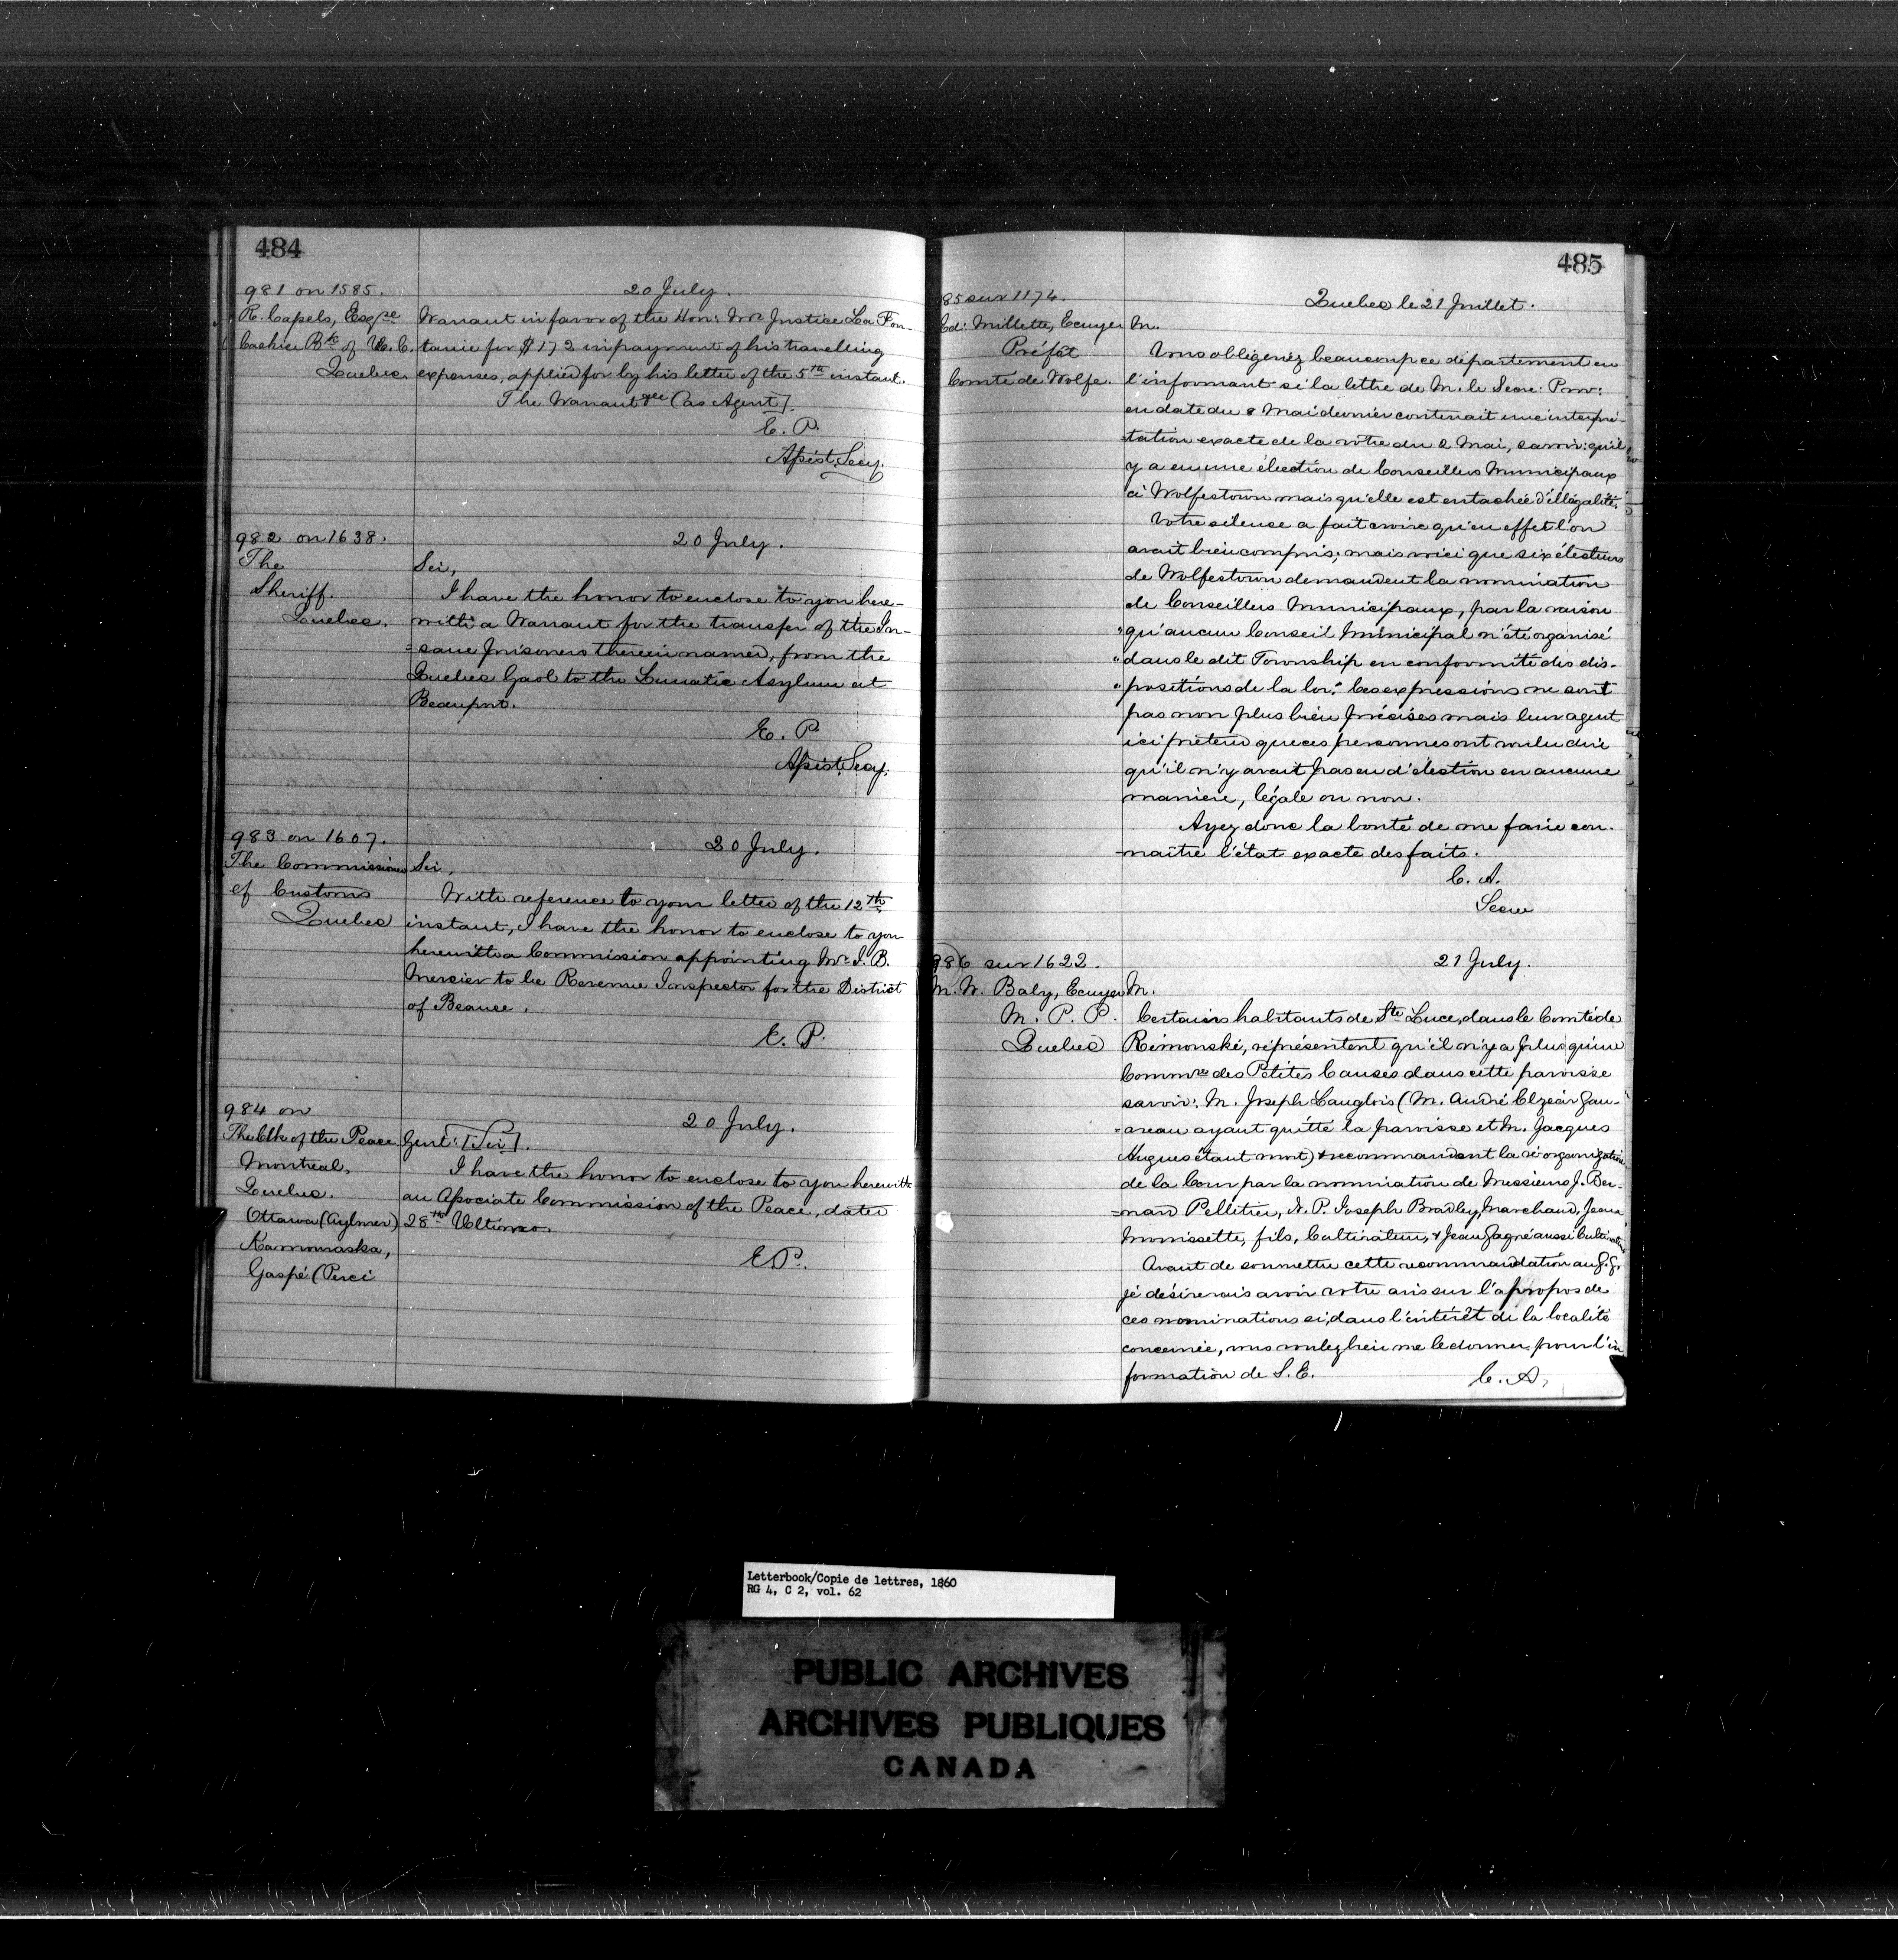 484
981 on 1585.
20 July.
R. Capels, Esqre
Cashier Bk of U. C.
Quebec.
Warrant in favor of the Hon: Mr. Justice La Fon-
taine for $172 in payment of his travelling
expenses, applied for by his letter of the 5th instant.
The Warrant (as Agent].
E. P.
Assist. Secy.
982 on 1638.
20 July.
The
Sheriff.
Quebec.
Sir,
I have the honor to enclose to you here-
with a Warrant for the transfer of the In-
=sane Prisoners therein named, from the
Quebec Gaol to the Lunatic Asylum at
Beauport.
E. P.
Assist. Secy.
983 on 1607.
20 July.
The Commissioner
of Customs
Quebec
Sir,
With reference to your letter of the 12th
instant, I have the honor to enclose to you
herewith a Commission appointing Mr. J. B.
Mercier to be Revenue Inspector for the District
of Beauce.
E. P.
984 on
20 July.
The Clk of the Peace
Montreal,
Quebec.
Ottawa (Aylmer)
Kamouraska,
Gaspé (Percé
Gent: [Sir].
I have the honor to enclose to you herewith
an Associate Commission of the Peace, dated
28th Ultimo.
E. P.
485
85 sur 1174.
Quebec le 21 Juillet.
Ed: Millette, Ecuyer
Préfèt
Comté de Wolfe.
M.
Vous obligeriez beaucoup ce département en
l'informant si la lettre de M. le Secre: Prov:
en date du 8 Mai dernier contenait une interpré-
-tation exacte de la vôtre du 2 Mai, savoir: qu'il
y a eu une élection de Conseillers Municipaux
à Wolfestown mais qu'elle est entachée d'illégalité.
Votre silence a fait croire qu'en effet l'on
avait bien compris; mais voici que six électeurs
de Wolfestown demandent la nomination
de Conseillers Municipaux, par la raison
"qu'aucun Conseil Municipal n'été organisé
"dans le dit Township en conformité des dis-
"positions de la loi." Ces expressions ne sont
pas non plus bien précises mais leur agent
ici prétend que ces personnes ont voulu dire
qu'il n'y avait pas eu d'élection en aucune
manière, légale ou non.
Ayez donc la bonté de me faire con-
-naître l'état exacte des faits.
C. A.
Secre
986 sur 1622.
21 July.
M. W. Baby, Ecuyer
M. P. P.
Quebec
M.
Certains habitants de Ste Luce, dans le Comté de
Rimouski, représentent qu'il n'y a plus qu'un
Commre des Petites Causes dans cette paroisse
savoir: M. Joseph Langlois (M. André Elzéar Gau-
=vreau ayant quitté la paroisse et M. Jacques
Hugues étant mort) & recommandent la réorganization
de la Cour par la nomination de Messieurs J. Ber-
=nard Pelletier, N. P. Joseph Bradley, Marchand, Jean
Morrissette, fils, Cultivateur, & Jean Gagné aussi Cultivateur
Avant de soumettre cette recommandation au G. G.
je désirerais avoir votre avis sur l'apropos de
ces nominations si, dans l'intérêt de la localité
concernée, vous voulez bien me le donner pour l'in
formation de S. E.
C. A.
Letterbook/Copie de lettres, 1860
RG 4, C 2, vol. 62
PUBLIC ARCHIVES
ARCHIVES PUBLIQUES
CANADA